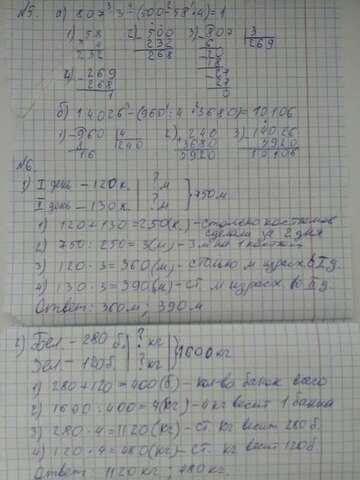 №5. а) 807 : 3 - (500 - 58 · 4) = 1
1) 58 2) 500 3) 807 | 3
4 232 6 269
232 268 20
18
4) 269 27
268 27
1 0
б) 14026 - (960 : 4 + 3680) = 10106
1) 960 | 4 2) 240 3) 14026
8 240 3680 3920
16 3920 10106
№6.
1) I день - 120 к. ? м
II день - 130 к. ? м } 750 м.
1) 120 + 130 = 250 (к.) - столько костюмов
сделали за 2 дня
2) 750 : 250 = 3 (м) - 3 м на 1 костюм
3) 120 · 3 = 360 (м) - столько м израсх. в I д.
4) 130 · 3 = 390 (м) - ст. м израсх. во II д.
Ответ: 360 м; 390 м
2) Бел - 280 б. ? кг
Зел - 120 б. ? кг } 1600 кг
1) 280 + 120 = 400 (б) - кол-во банок всего
2) 1600 : 400 = 4 (кг) - 4 кг весит 1 банка
3) 280 · 4 = 1120 (кг) - ст. кг весит 280 б.
4) 120 · 4 = 480 (кг) - ст. кг весит 120 б
Ответ: 1120 кг; 480 кг.